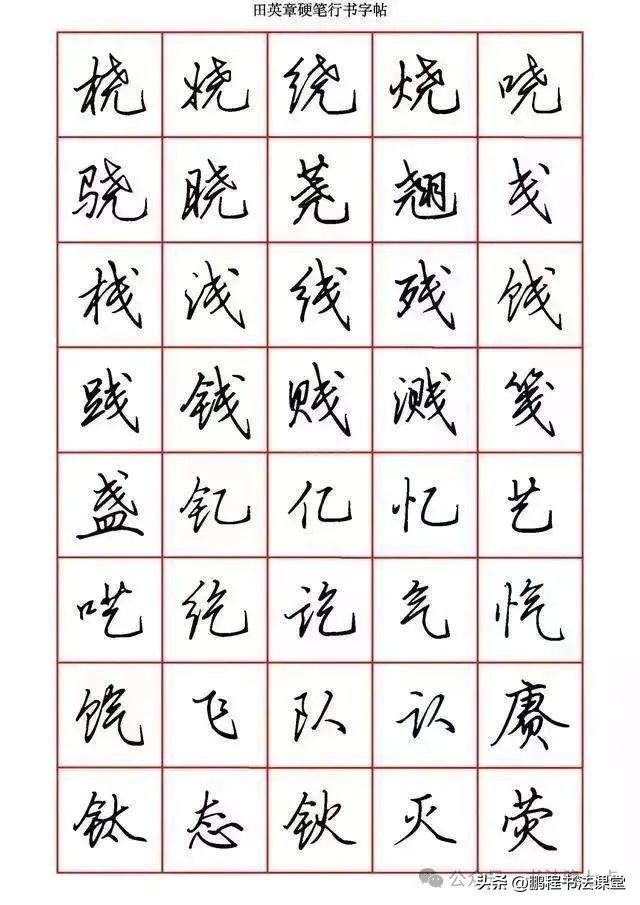 田英章硬笔行书字帖
桡 娆 绕 烧 哓
骁 晓 荛 翘 戋
栈 浅 线 残 饯
践 钱 贱 溅 笺
盏 钇 亿 忆 艺
呓 纥 讫 气 忾
饩 飞 队 认 赓
钛 态 钬 灭 荧
头条 @鹏程书法课堂